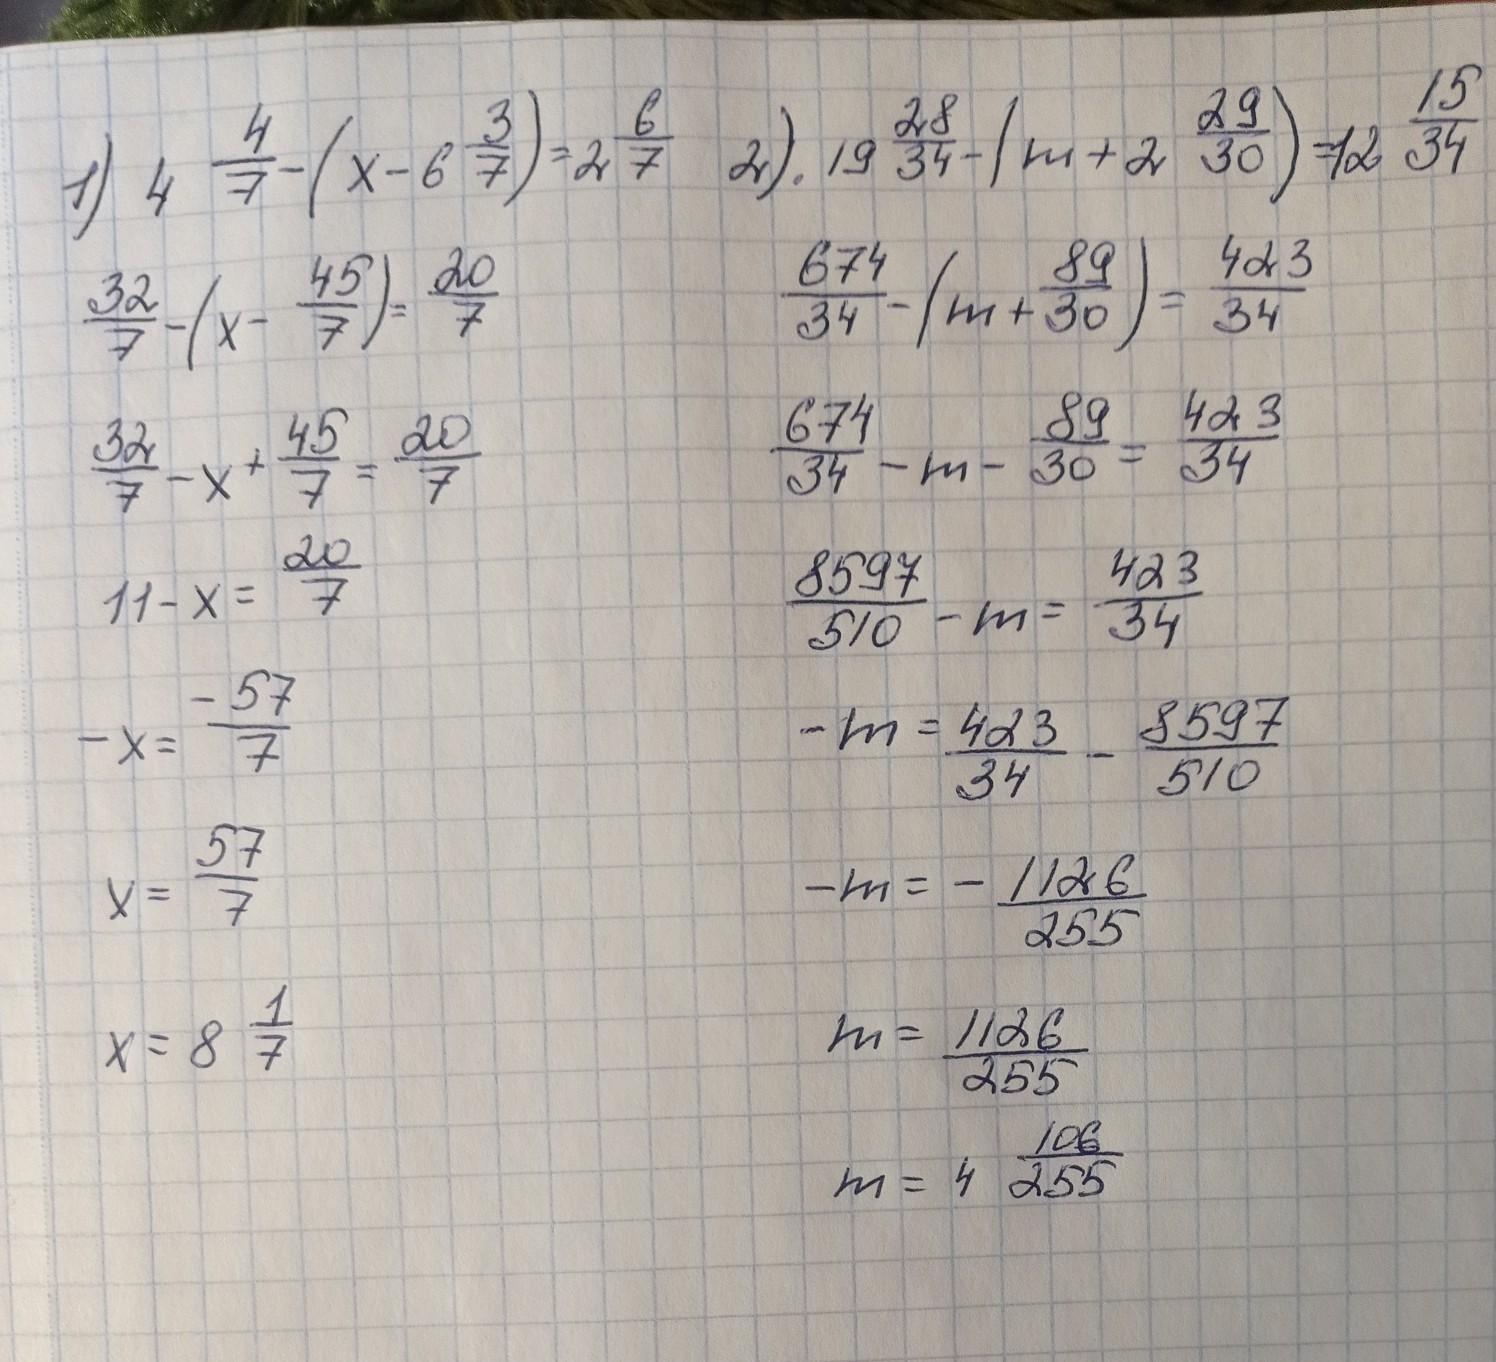 1) 4 4/7 - (x - 6 3/7) = 2 6/7
32/7 - (x - 45/7) = 20/7
32/7 - x + 45/7 = 20/7
11 - x = 20/7
-x = -57/7
x = 57/7
x = 8 1/7
2). 19 28/34 - (m + 2 29/30) = 12 15/34
674/34 - (m + 89/30) = 423/34
674/34 - m - 89/30 = 423/34
8597/510 - m = 423/34
-m = 423/34 - 8597/510
-m = - 1126/255
m = 1126/255
m = 4 106/255